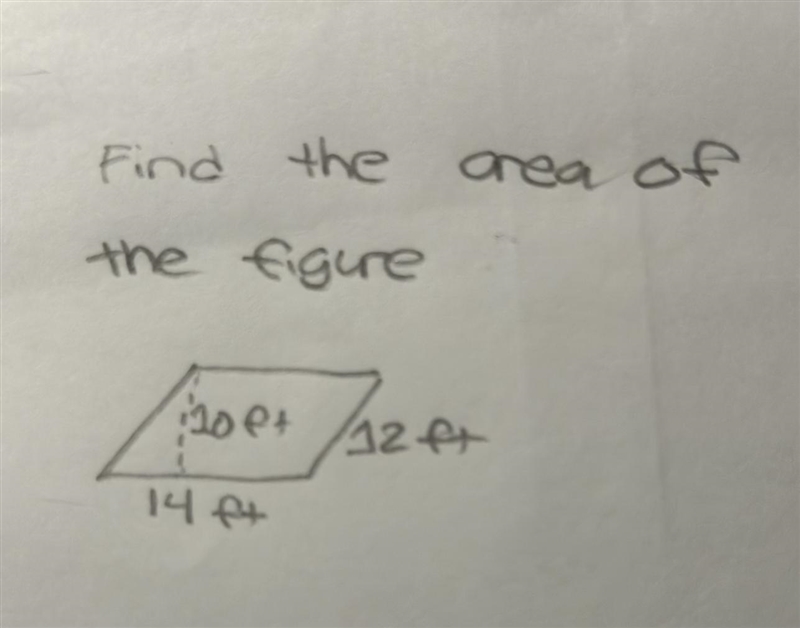 Find the area of
the figure
10 ft
12 ft
14 ft